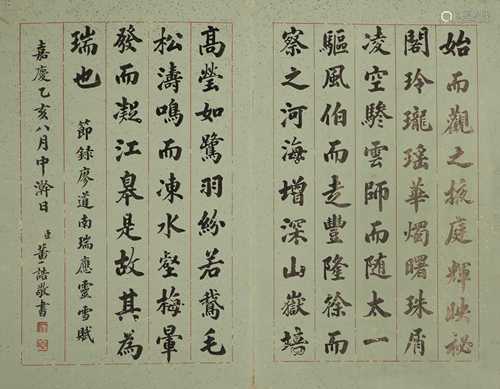 始而觀之掖庭輝映祕
閣玲瓏瑤華燭曙珠屑
凌空驂雲師而随太一
驅風伯而走豐隆徐而
察之河海增深山嶽培
高瑩如鷺羽紛若鵞毛
松濤鳴而凍水壑梅暈
發而凝江皋是故其為
瑞也
節錄廖道南瑞應靈雪賦
嘉慶乙亥八月中澣日
臣董誥敬書